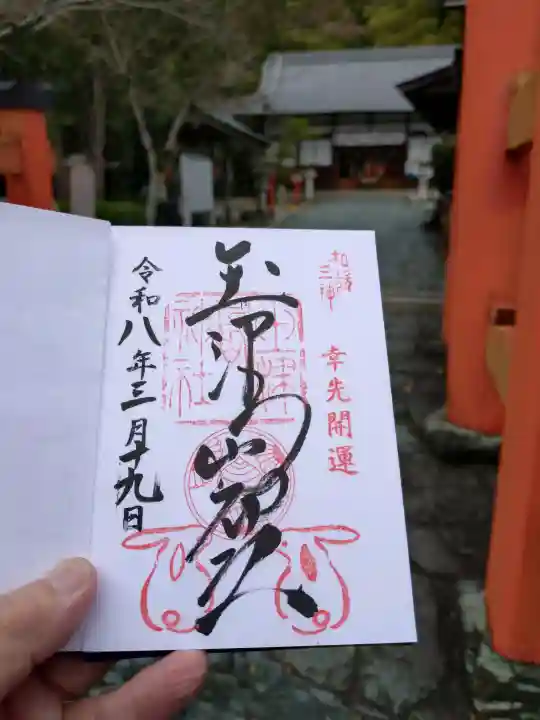 和歌
三神
幸先開運
玉津島神社
玉津島
神社
令和八年三月十九日